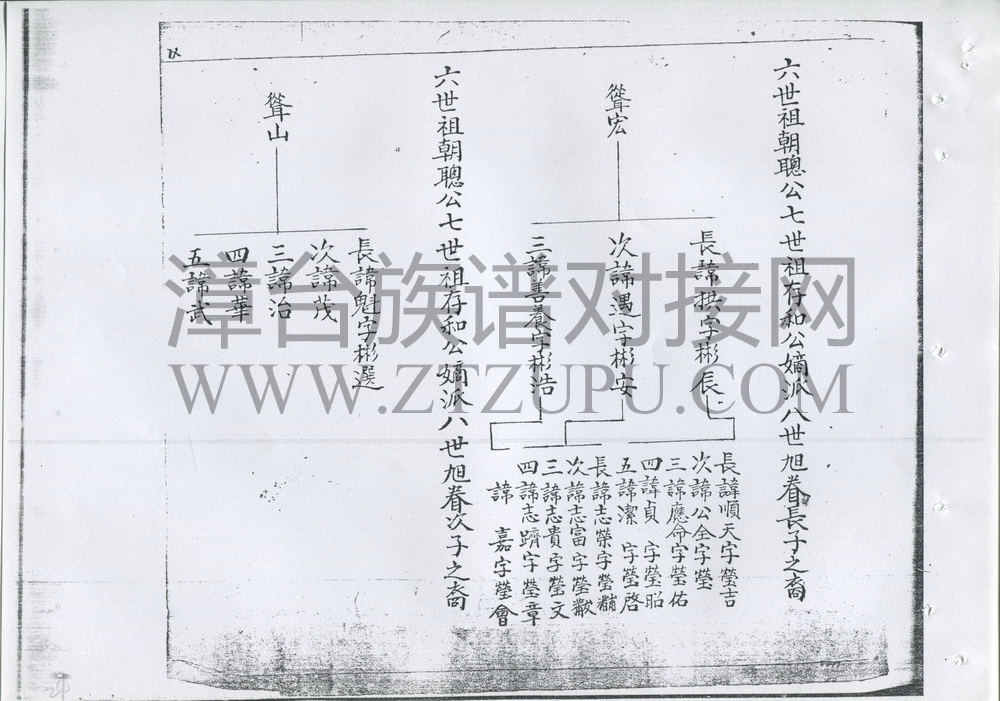 六世祖朝聰公七世祖存和公嫡派八世旭眷長子之裔
聳宏
長諱拱字彬辰
次諱遇字彬安
三諱善養字彬浩
長諱順天字瑩吉
次諱公全字瑩
三諱應命字瑩佑
四諱貞 字瑩昭
五諱潔 字瑩啓
長諱志榮字瑩黼
次諱志富字瑩黻
三諱志貴字瑩文
四諱志躋字瑩章
諱 嘉字瑩會
六世祖朝聰公七世祖存和公嫡派八世旭眷次子之裔
聳山
長諱魁字彬選
次諱茂
三諱治
四諱華
五諱武
漳台族谱对接网
WWW.ZTZUPU.COM
24